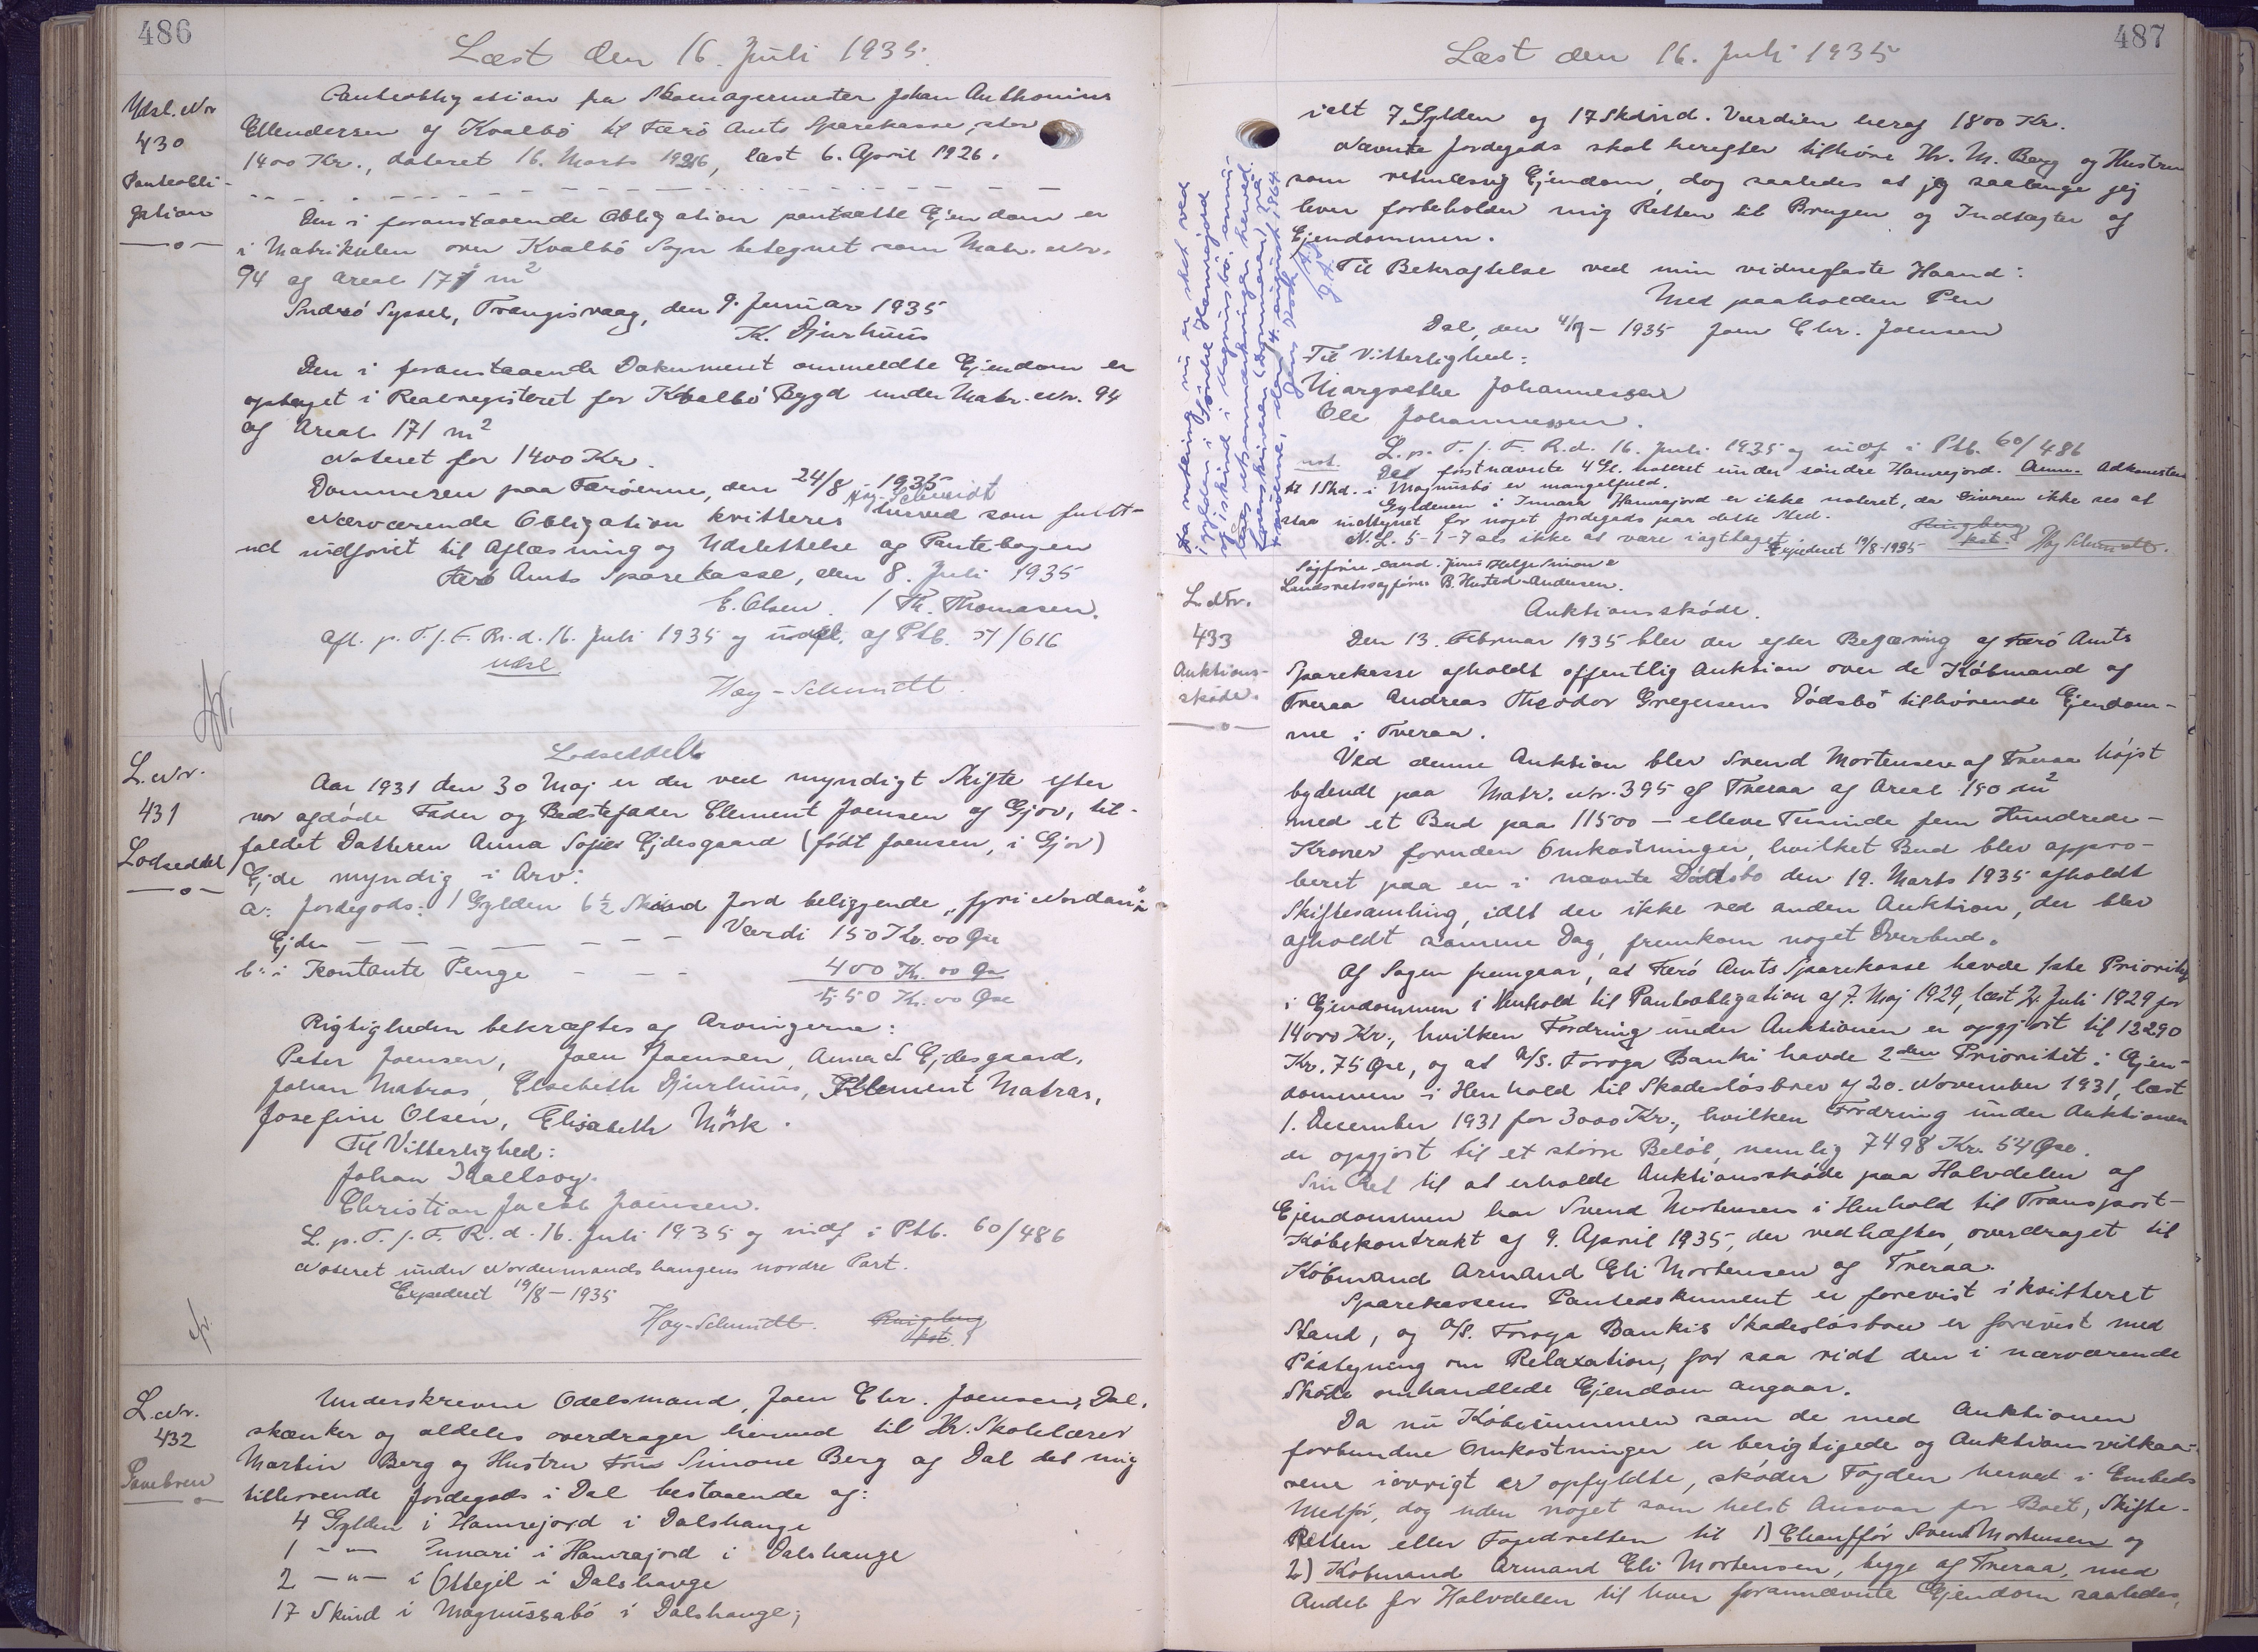 486
Læst den 16. Juli 1935.
Udsl. Nr
430
Panteobli-
gation
Panteobligation fra Skomagermester Johan Anthonius
Ellendersen af Kvalbö til Færö Amts Sparekasse, stor
1400 Kr., dateret 16. Marts 1926, læst 6. April 1926.
Den i foranstaaende Obligation pantsatte Ejendom er
i Matrikulen over Kvalbö Sogn betegnet som Matr. Nr.
94 af Areal 171 m2
Suderö Syssel, Trangisvaag, den 9. Januar 1935
K. Djurhuus
Den i foranstaaende Dokument ommeldte Ejendom er
optaget i Realregisteret for Kvalbö Bygd under Matr. Nr. 94
af Areal 171 m2
Noteret for 1400 Kr.
Dommeren paa Færöerne, den 24/8 - 1935
Høg-Schmidt
Nærværende Obligation kvitteres herved som fuldt-
ud indfriet til Aflæsning og Udslettelse af Pantebogen
Færö Amts Sparekasse, den 8. Juli 1935
E. Olsen. / Th. Thomasen.
Afl. p. T. f. F. R. d. 16. Juli 1935 og udsl. af Ptb. 51/616
udsl
Høy-Schmidt.
L. Nr.
431
Lodseddel
Lodseddel
Aar 1931 den 30 Maj er der ved myndigt Skifte efter
vor afdøde Fader og Bedstefader Clement Joensen af Gjov, til-
faldet Datteren Anna Sofie Ejdesgaard (født Joensen, i Gjov)
Ejde myndig i Arv:
a: Jordegods: 1 Gylden 6½ Skind Jord beliggende "fyri Nordan"
Ejde - - - - - - - Værdi 150 Kr. 00 Øre
b: i Kontante Penge - - - 400 Kr. 00 Øre
550 Kr. 00 Øre
Rigtigheden bekræftes af Arvingerne:
Peter Joensen, Joen Joensen, Anna S Ejdesgaard,
Johan Matras, Elsebeth Djurhuus, Klement Matras,
Josefine Olsen, Elisabeth Mörk.
Til Vitterlighed:
Johan Kallsoy.
Christian Jacob Joensen.
L. p. T. f. F. R. d. 16. Juli 1935 og indf i Ptb. 60/486
Noteret under Nordurmandshaugens nordre Part.
Expederet 19/8 - 1935
Høy-Schmidt. Ringberg
kst.
L. Nr.
432
Gavebrev
Underskrevne Odelsmand, Joen Chr. Joensen, Dal,
skænker og aldeles overdrager herved til Hr. Skolelærer
Martin Berg og Hustru Fru Simone Berg af Dal det mig
tilhørende Jordegods i Dal bestaaende af:
4 Gylden i Hamrejord i Dalshauge
1 -"- Innari i Hamrajord i Dalshauge
2 -"- i Ottegil i Dalshauge
17 Skind i Magnussabó i Dalshauge;
487
Læst den 16. Juli 1935
ialt 7 Gylden og 17 Skind. Værdien heraf 1800 Kr.
Nævnte Jordegods skal herefter tilhøre Hr. M. Berg og Hustru
som retmæssig Ejendom, dog saaledes at jeg saalænge jeg
lever forbeholder mig Retten til Brugen og Indtægter af
Ejendommen.
Til Bekræftelse ved min vidnefaste Haand:
Med paaholden Pen
Dal, den 4/7 - 1935 Joen Chr. Joensen
Til Vitterlighed:
Margrethe Johannessen
Ole Johannessen.
L. p. T. f. F. R. d. 16. Juli 1935 og indf i Ptb. 60/486
not. De förstnævnte 4 Gl. noteret under søndre Hamrejord. Anm. Adkomsten
til 1 Skd. i Magnusbö er mangelfuld.
Gyldenen i Innara Hamrajord er ikke noteret, da Giveren ikke ses at
staa indtegnet for noget Jordegods paa dette Sted.
N. L. 5-1-7 ses ikke at være iagttaget
Expederet 19/8-1935 Ringberg kst. Høy Schmidt.
Da notering nu er sket ved
1 gylden i Søndre Hamrejord
og 1 skind i Magnusbö, annul-
leres retsanmærkningen herved.
Sorenskriveren (Dommeren) paa
Færöerne, den 14. august 1964.
L. Nr.
433
Auktions-
skøde.
Sagfører cand. juris Helge Simon &
Landsretssagfører B. Husted-Andersen.
Auktionsskøde.
Den 13. Februar 1935 blev der efter Begæring af Færö Amts
Sparekasse afholdt offentlig Auktion over de Købmand af
Tveraa Andreas Theodor Gregersens Dödsbo tilhørende Ejendom-
me i Tveraa.
Ved denne Auktion blev Svend Mortensen af Tveraa højst
bydende paa Matr. Nr. 395 af Tveraa af Areal 190 m2
med et Bud paa 11500 - elleve Tusinde fem Hundrede -
Kroner foruden Omkostninger, hvilket Bud blev appro-
beret paa en i nævnte Dødsbo den 19. Marts 1935 afholdt
Skiftesamling, idet der ikke ved anden Auktion, der blev
afholdt samme Dag, fremkom noget Overbud.
Af Sagen fremgaar, at Færö Amts Sparekasse havde 1ste Prioritet
i Ejendommen i Henhold til Panteobligation af 7. Maj 1929, læst 2. Juli 1929 for
14000 Kr., hvilken Fordring under Auktionen er opgjort til 13290
Kr. 75 Øre, og at A/S. Foroya Banki havde 2den Prioritet i Ejen-
dommen i Henhold til Skadesløsbrev af 20. November 1931, læst
1. December 1931 for 3000 Kr., hvilken Fordring under Auktionen
er opgjort til et større Beløb, nemlig 7498 Kr. 54 Øre.
Sin Ret til at erholde Auktionsskøde paa Halvdelen af
Ejendommen har Svend Mortensen i Henhold til Transport-
Købekontrakt af 9. April 1935, der vedhæftes, overdraget til
Købmand Armand Eli Mortensen af Tveraa.
Sparekassens Pantedokument er forevist i kvitteret
Stand, og A/S. Foroya Bankis Skadesløsbrev er forevist med
Paategning om Relaxation, for saa vidt den i nærværende
Skøde omhandlede Ejendom angaar.
Da nu Købesummen som de med Auktionen
forbundne Omkostninger er berigtigede og Auktionsvilkaa-
rene iøvrigt er opfyldte, skøder Fogden herved i Embeds
Medfør, dog uden noget som helst Ansvar for Boet, Skifte-
Retten eller Fogedretten til 1) Chauffør Svend Mortensen og
2) Købmand Armand Eli Mortensen, begge af Tveraa, med
Andel for Halvdelen til hver forannævnte Ejendom saaledes,